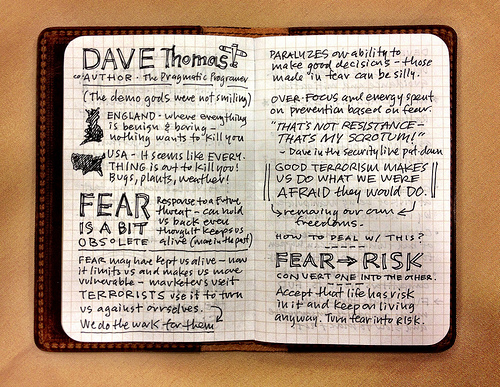 DAVE Thomas
CO AUTHOR · The Pragmatic Programer
(The demo gods were not smiling)
ENGLAND - where everything
is benign & boring -
nothing wants to kill you
USA - It seems like EVERY-
THING is out to kill you!
Bugs, plants, weather!
FEAR
IS A BIT
OBSOLETE
Response to a future
threat - can hold
us back even
thought keeps us
alive (more in the past)
FEAR may have kept us alive - now
it limits us and makes us more
vulnerable - marketers use it
TERRORISTS use it to turn
us against ourselves.
We do the work for them
PARALYZES our ability to
make good decisions - those
made in fear can be silly.
OVER-FOCUS and energy spent
on prevention based on fear.
"THAT'S NOT RESISTANCE -
THAT'S MY SCROTUM!"
- Dave in the security line pat-down
GOOD TERRORISM MAKES
US DO WHAT WE WERE
AFRAID they would DO.
→ removing our own
freedoms.
HOW TO DEAL W/ THIS?
FEAR → RISK
CONVERT ONE INTO THE OTHER.
Accept that life has risk
in it and keep on living
anyway. Turn fear into RISK.